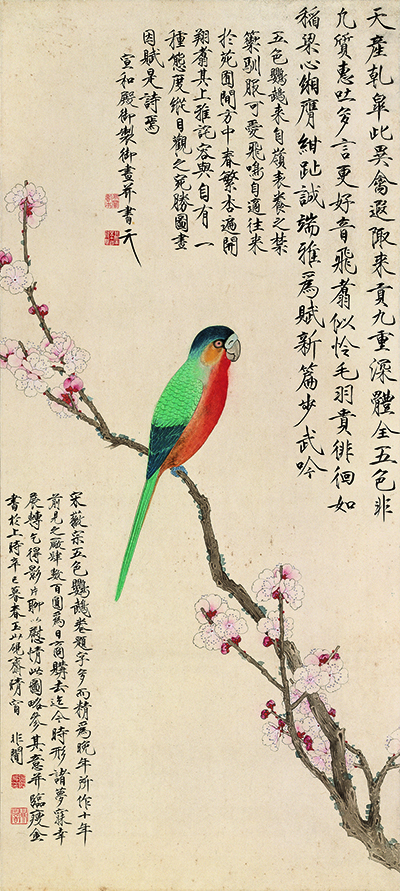 天產乾皋此異禽遐陬來貢九重深體全五色非
凡質惠吐多言更好音飛翥似怜毛羽貴徘徊如
稻粱心緗膺紺趾誠端雅爲賦新篇步武吟
五色鸚鵡來自嶺表養之禁
籞馴服可愛飛鳴自適往來
於苑囿間方中春繁杏遍開
翔翥其上雅詫容與自有一
種態度縱目觀之宛勝圖畫
因賦是詩焉
宣和殿御製御畫并書
宋徽宗五色鸚鵡卷題字多而精爲晚年所作十年
前見之廠肆數百圓爲日商購去迄今時形諸夢寐幸
展轉乞得影片聊以慰情此圖略參其意并臨瘦金
書於上時辛巳暮春玉山硯齋晴窗 非闇